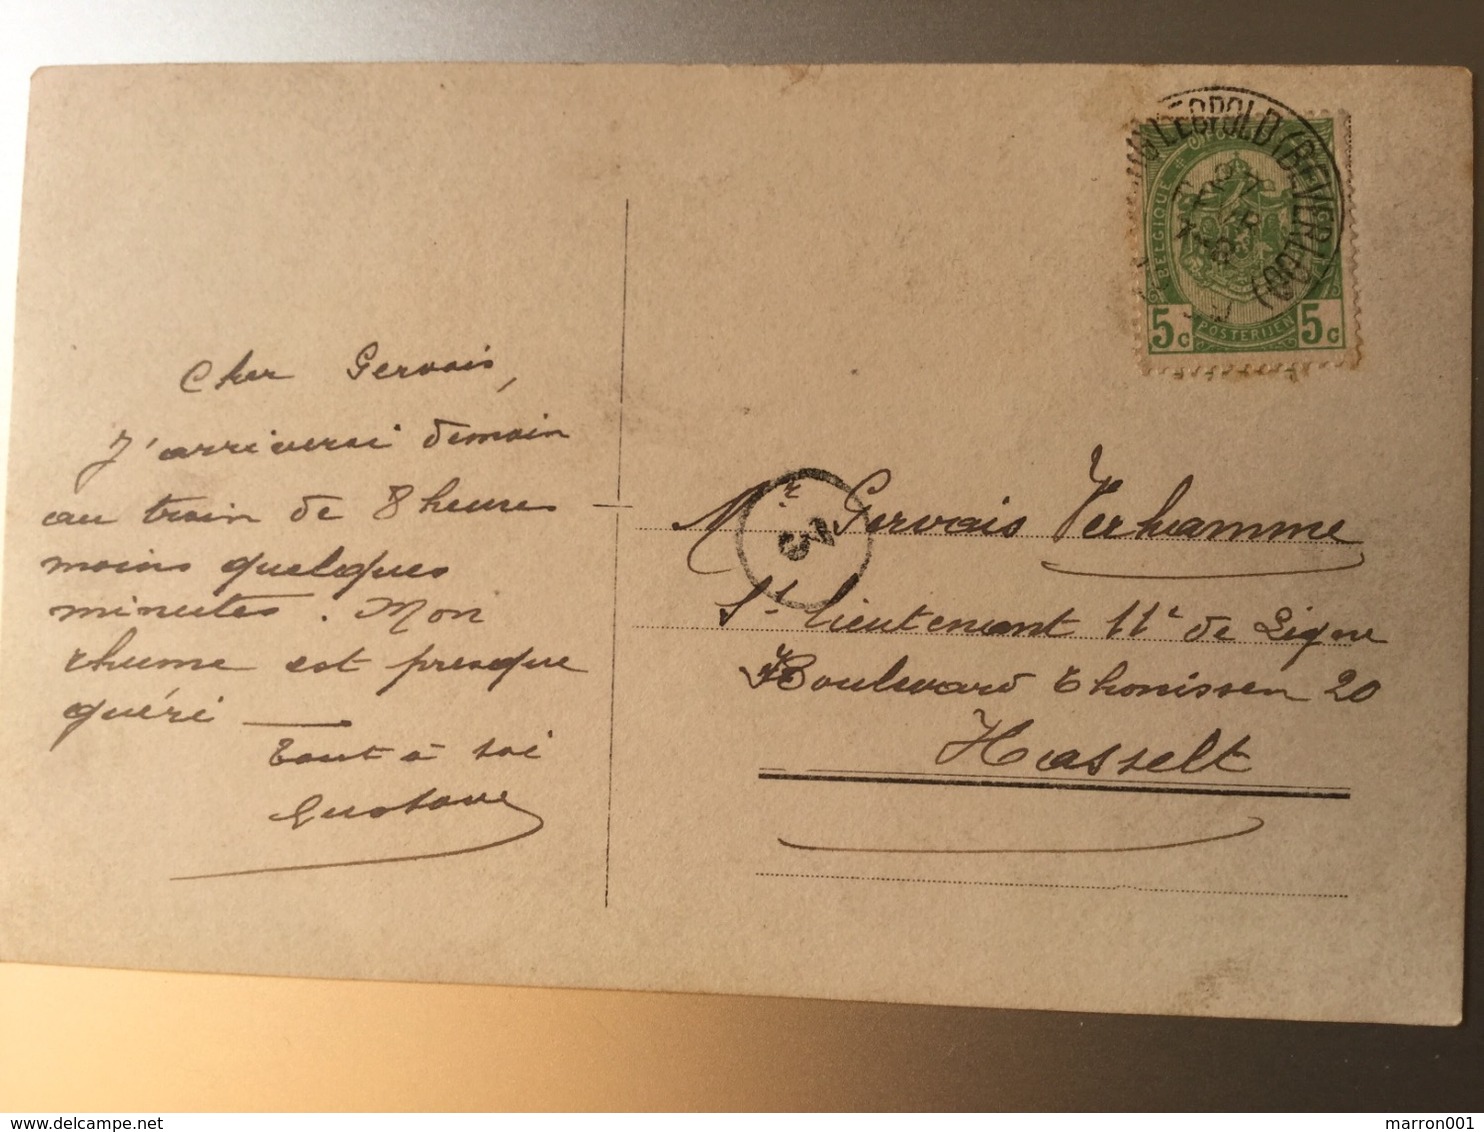 Cher Gervais,
J'arriverai demain
au train de 8 heures
moins quelques
minutes. Mon
rhume est presque
guéri
Tout à toi
Gustave
LEOPOLD (BEVERLOO)
27
BELGIQUE
5c POSTERIJEN 5c
Mr Gervais Verhamme
St Lieutenant 11e de Ligne
Boulevard Thonissen 20
Hasselt
marron001